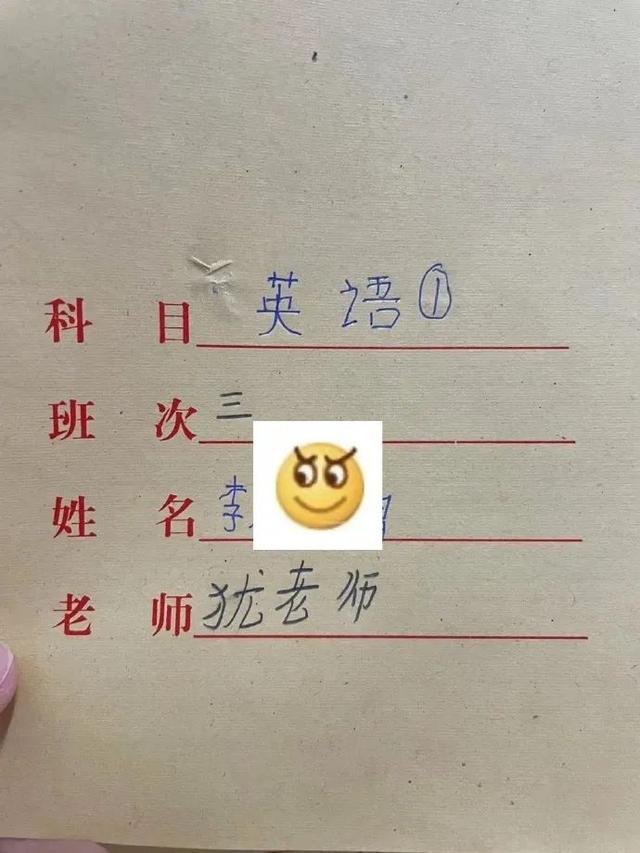 科 目 英语①
班 次 三
姓 名 李
老 师 犹老师